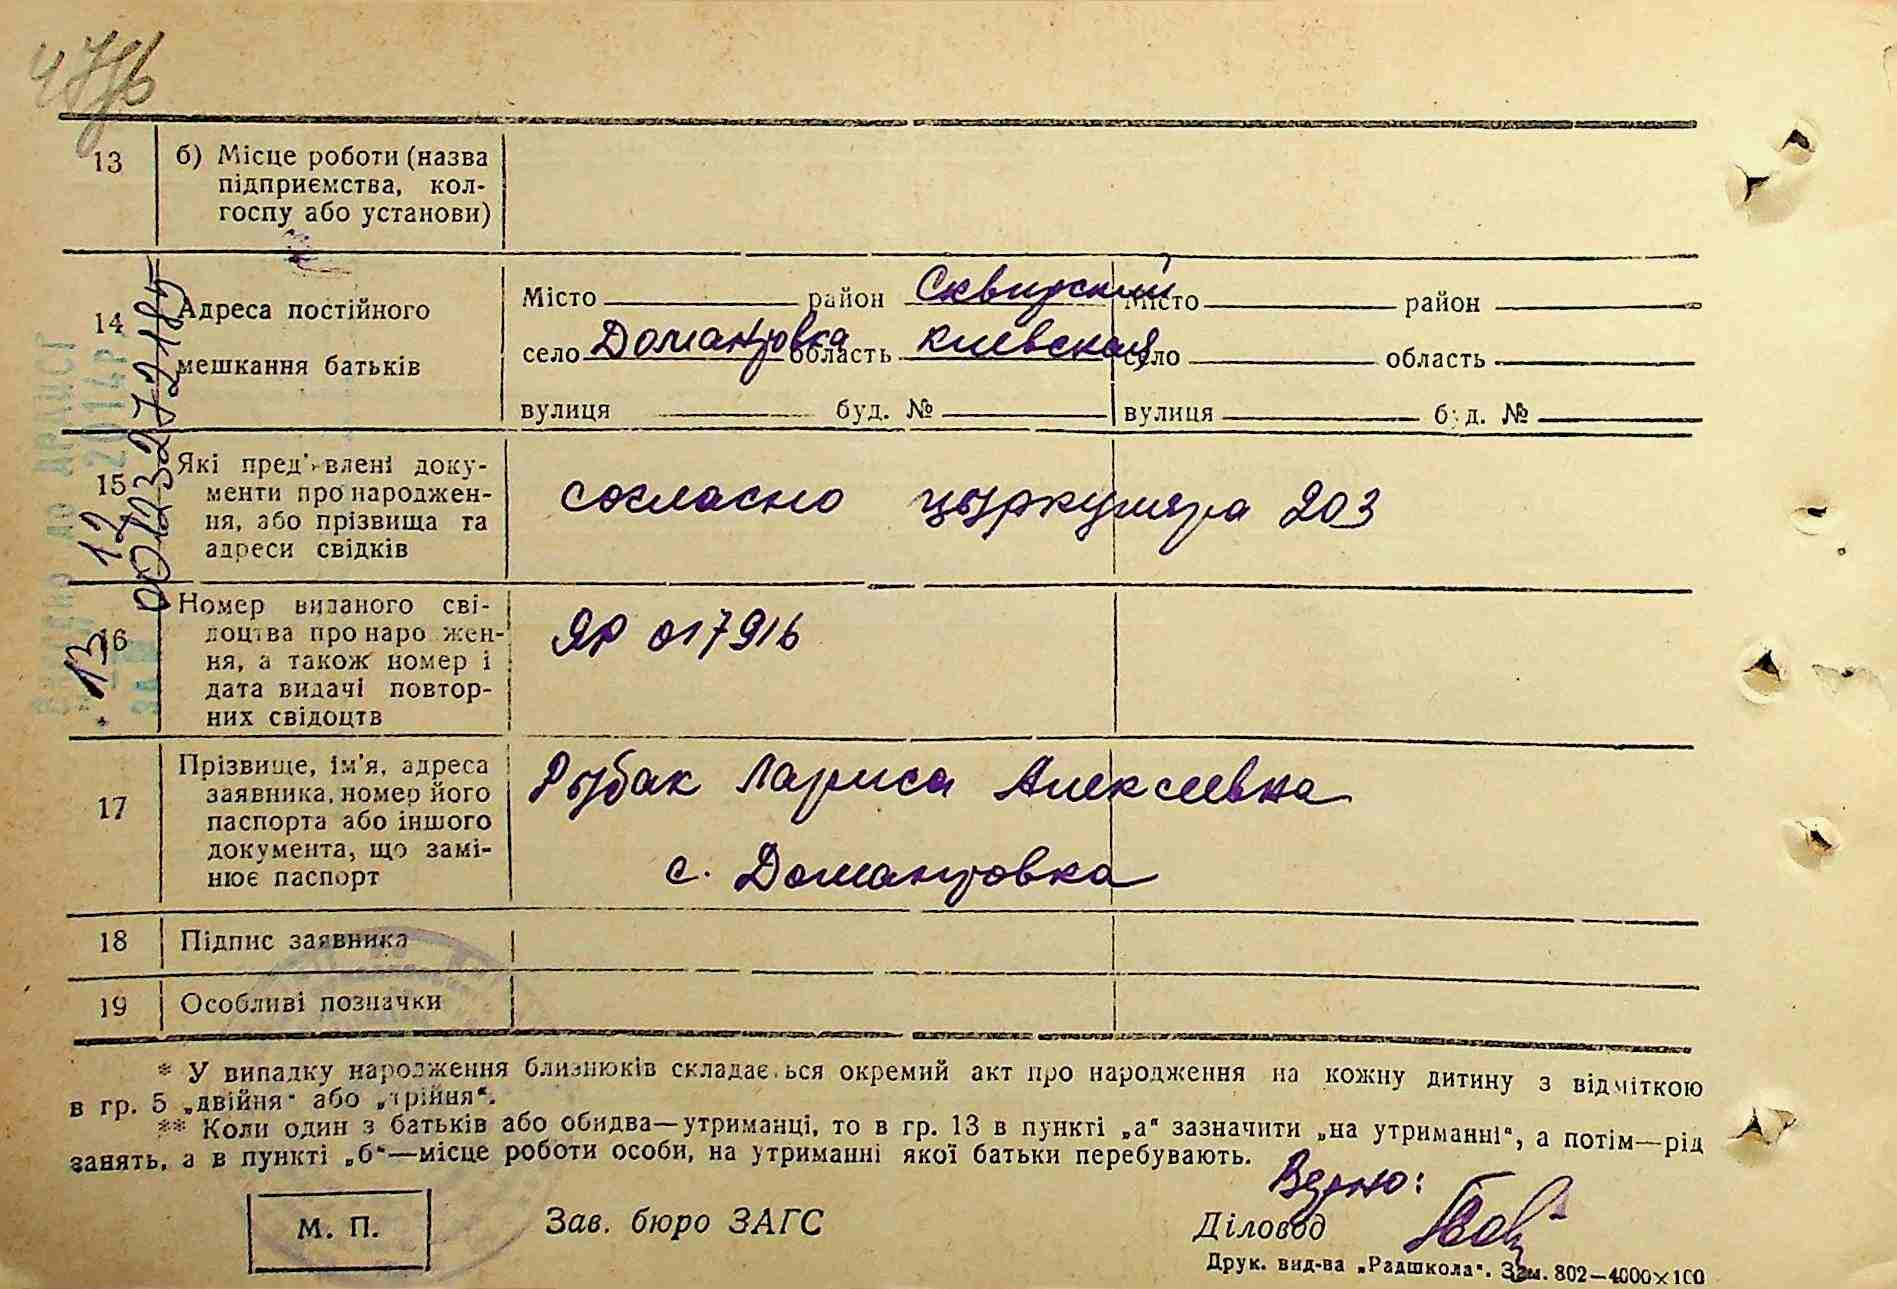 13
б) Місце роботи (назва
підприємства, кол-
госпу або установи)
14
Адреса постійного
мешкання батьків
Місто район Сквирский Місто район
село Домантовка область Киевская село область
вулиця буд. № вулиця буд. №
00123272185
15
Які пред'явлені доку-
менти про народжен-
ня, або прізвища та
адреси свідків
согласно цыркуляра 203
13 12 2014р.
16
Номер виданого сві-
доцтва про народжен-
ня, а також номер і
дата видачі повтор-
них свідоцтв
ЯР 017916
17
Прізвище, ім'я, адреса
заявника, номер його
паспорта або іншого
документа, що замі-
нює паспорт
Рыбак Лариса Алексеевна
с. Домантовка
18 Підпис заявника
19 Особливі позначки
* У випадку народження близнюків складається окремий акт про народження на кожну дитину з відміткою
в гр. 5 „двійня“ або „трійня“.
** Коли один з батьків або обидва—утриманці, то в гр. 13 в пункті „а“ зазначити „на утриманні“, а потім—рід
занять, а в пункті „б“—місце роботи особи, на утриманні якої батьки перебувають.
Верно:
М. П. Зав. бюро ЗАГС Діловод
Друк. вид-ва „Радшкола“. Зам. 802—4000×100